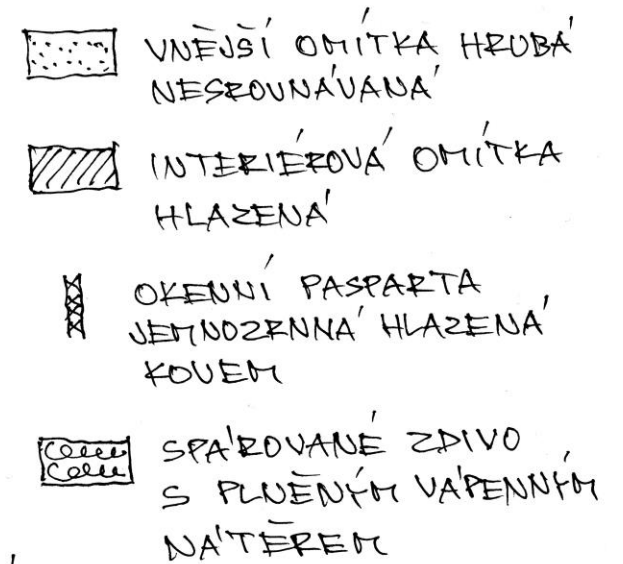 VNĚJŠÍ OMÍTKA HRUBÁ
NESROVNÁVANÁ
INTERIÉROVÁ OMÍTKA
HLAZENÁ
OKENNÍ PASPARTA
JEMNOZRNNÁ HLAZENÁ
KOVEM
SPÁROVANÉ ZDIVO
S PLNĚNÝM VÁPENNÝM
NÁTĚREM